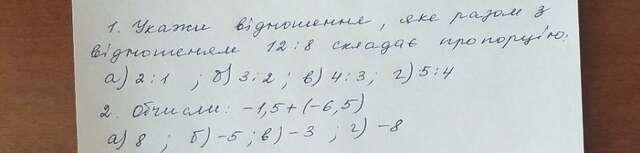 1. Укажи відношення, яке разом з
відношенням 12:8 складає пропорцію:
а) 2:1 ; б) 3:2 ; в) 4:3 ; г) 5:4
2. Обчисли: -1,5+(-6,5)
а) 8 ; б) -5 ; в) -3 ; г) -8